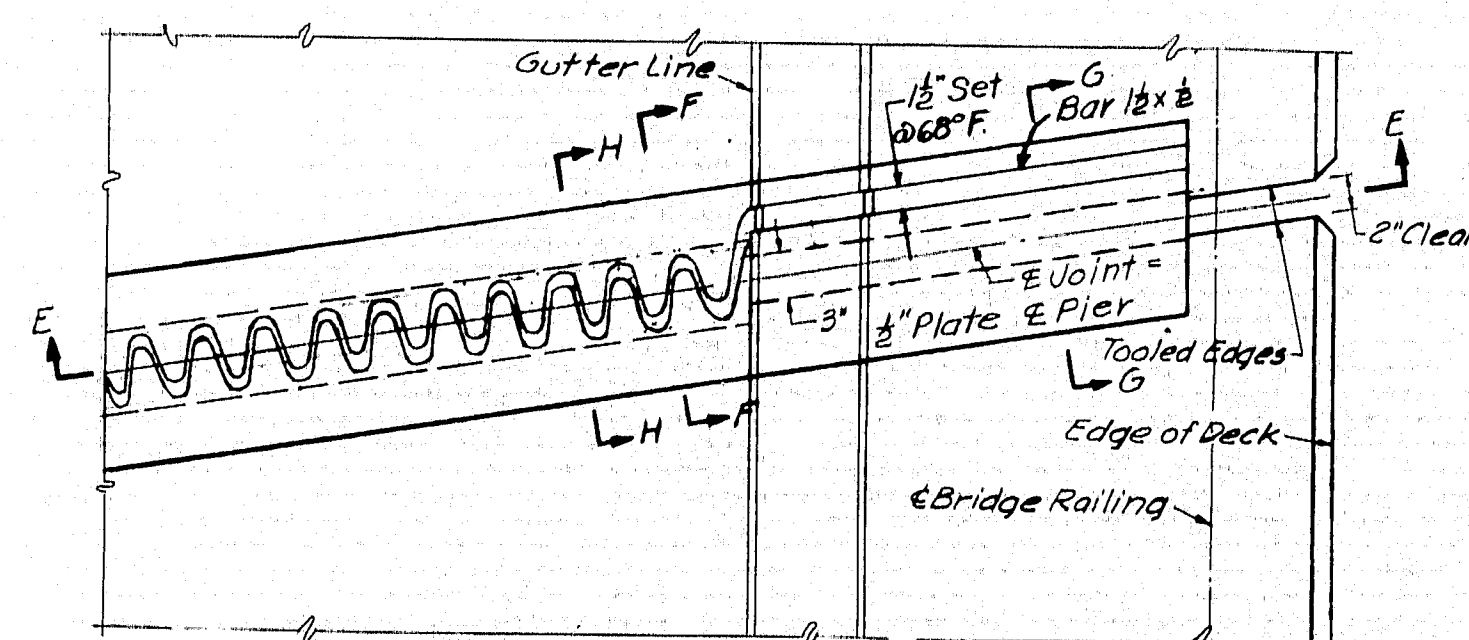 Gutter Line
1½" Set
@68°F.
G
Bar 1½ x ½
F
H
E
2" Clear
℄ Joint =
℄ Pier
3"
½" Plate
E
Tooled Edges
G
H
F
Edge of Deck
℄ Bridge Railing